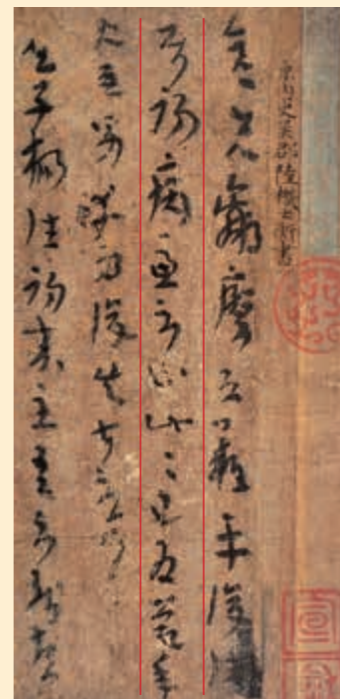 晉内史吳郡陸機士衡書
彦先羸瘵恐難平復往
屬初病慮不止此〻已為慶承
使唯男幸為復失前憂耳
吳子楊往初來主吾不能盡
宣